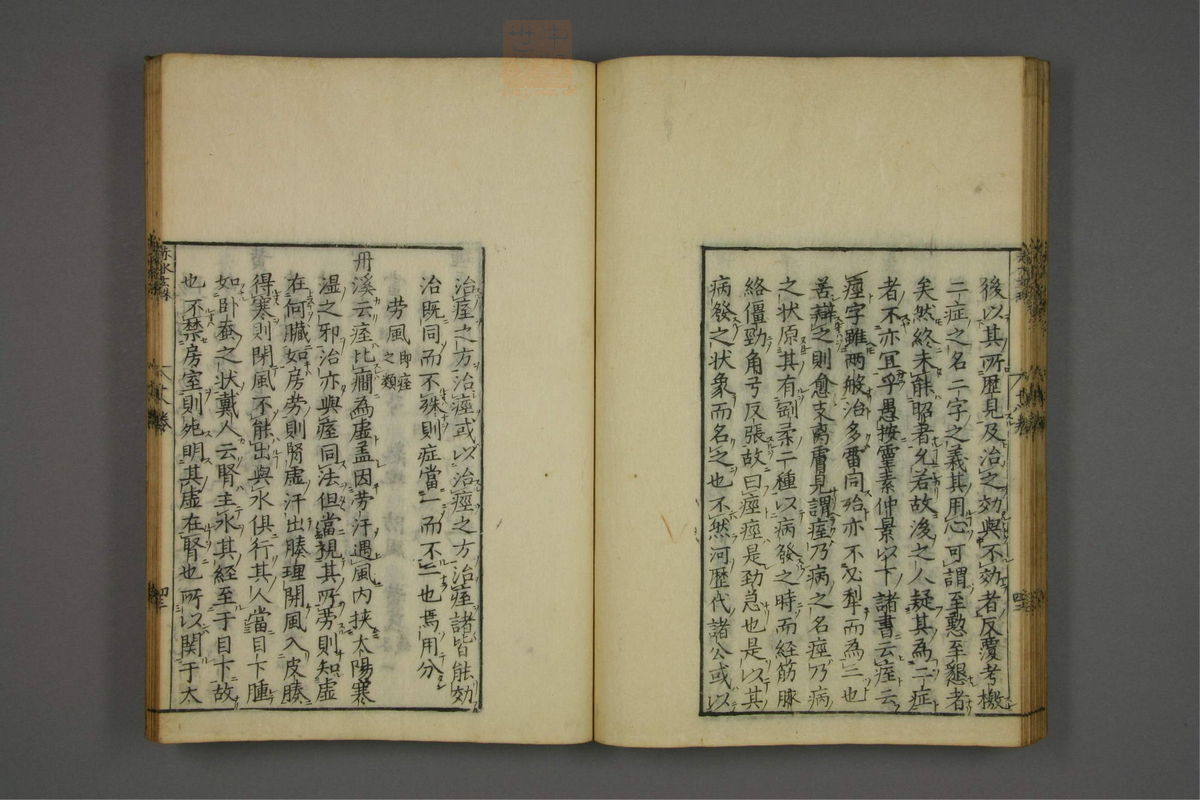 後以其所歴見及治之効與不効者反覆考檄
二症之名二字之義其用心可謂至懃至懇者
矣然終未能昭著允若故後之人疑其為二症
者不亦宜乎愚按靈素仲景以下諸書云痓云
痙字雖兩般治多雷同殆亦不又犁而為二也
苦辯之則愈支离膚見謂痓乃病之名痙乃病
之状原其有剛柔二種以病發之時而経筋脉
絡僵勁角弓反張故曰痙痙是勁急也是以其
病發之状象而名之也不然河歴代諸公或以
治痓之方治痙或以治痙之方治痓諸皆能効
治既同而不殊則症當一而不二也焉用分
労風即痓之類
丹溪云痓比癎為虚盖因労汗遇風内挾太陽寒
湿之邪治亦與痙同法但當視其所労則知虚
在何臓如房労則腎虚汗出腠理開風入皮腠
得寒則閉風不能出與水俱行其人當目下腫
如卧蚕之状戴人云腎主水其経至于目下故
也不禁房室則死明其虚在腎也所以関于太